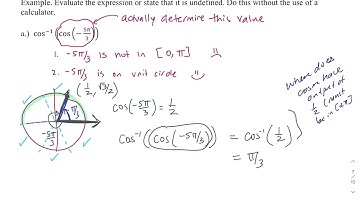 Example. Evaluate the expression or state that it is undefined. Do this without the use of a
calculator.
actually determine this value
a.) cos⁻¹(cos(-5π/3))
1. -5π/3 is not in [0, π]
2. -5π/3 is on unit circle
(1/2, √3/2)
π/3
-5π/3
cos(-5π/3) = 1/2
cos⁻¹(cos(-5π/3)) = cos⁻¹(1/2)
= π/3
where does
cosine have
output of
1/2 (must
be in [0,π])